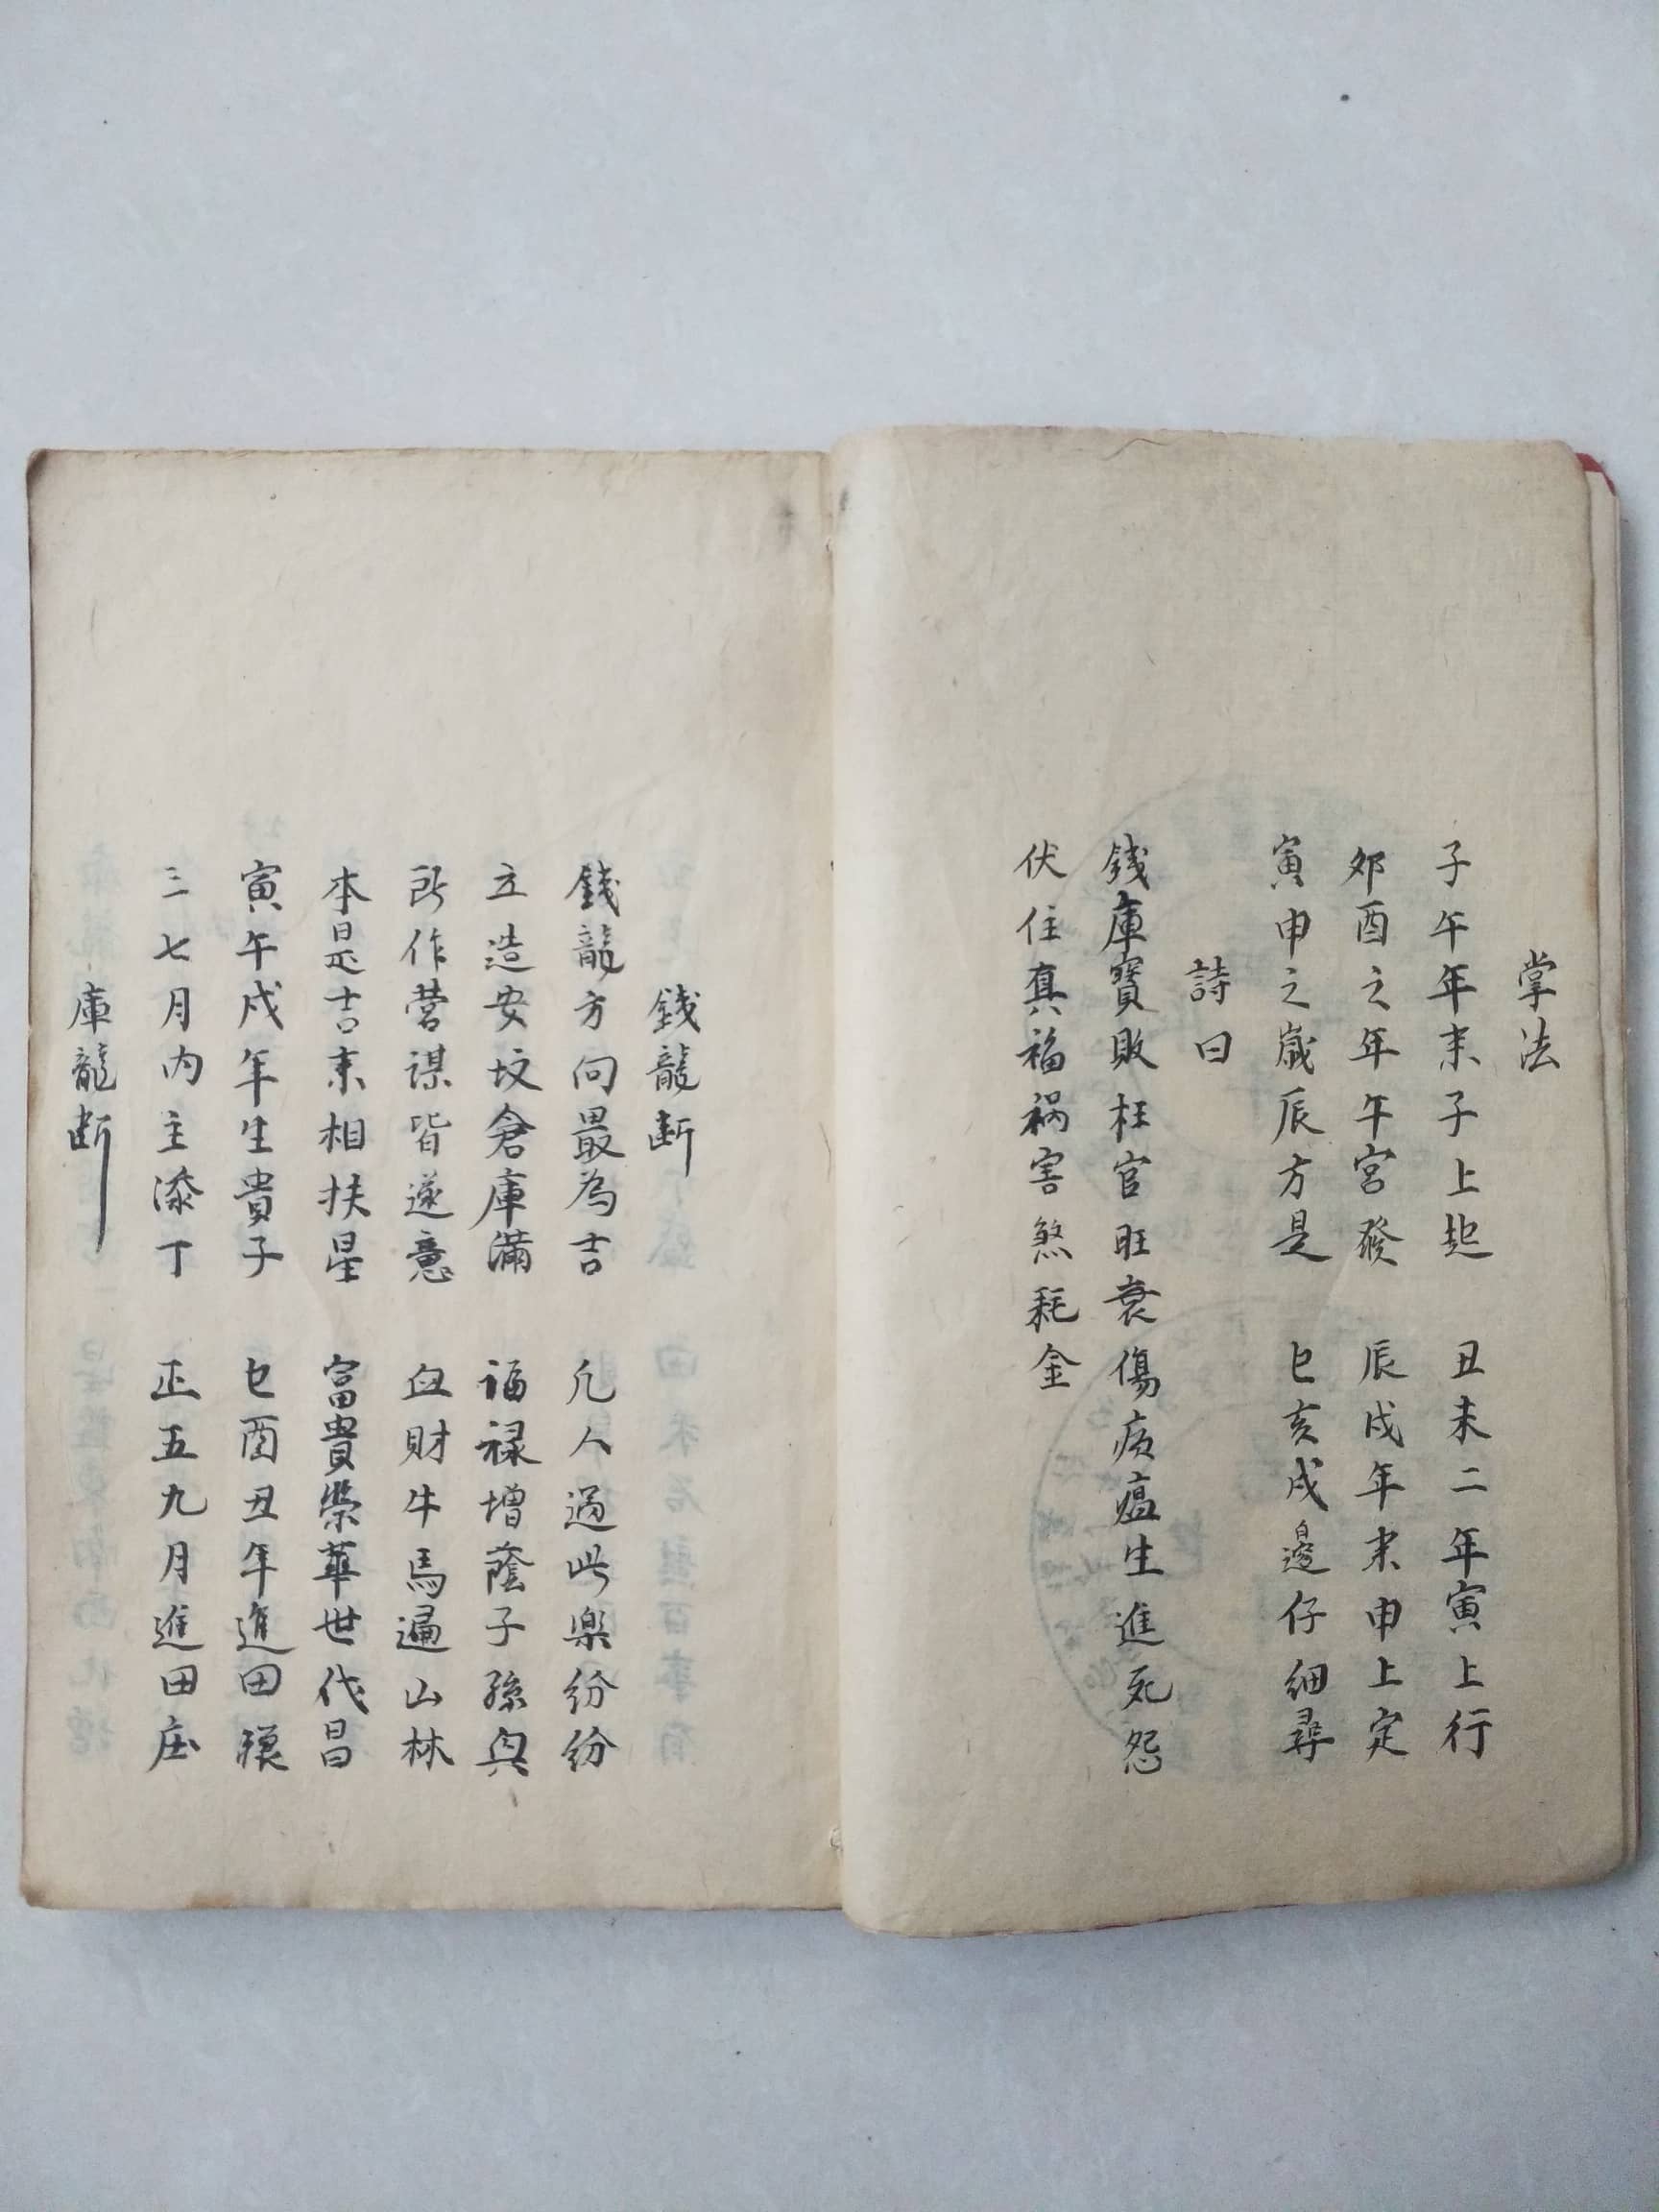 掌法
子午年来子上起 丑未二年寅上行
卯酉之年午宮發 辰戌年来申上定
寅申之歲辰方是 巳亥戌邊仔細尋
詩曰
錢庫寶敗枉官旺衰傷病瘟生進死怨
伏住真福禍害煞耗金
錢龍断
錢龍方向最為吉 凡人遇此樂纷纷
立造安坟倉庫滿 福禄增蔭子孫
所作营謀皆遂意 血財牛馬遍山林
本是吉来相扶星 富貴榮華世代昌
寅午戌年生貴子 巳酉丑年進田
三七月内主添丁 正五九月進田庄
庫龍断